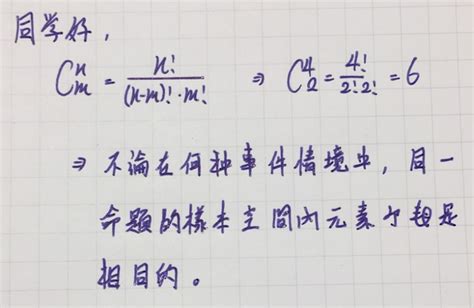 同学好，
C^n_m = n! / (n-m)!·m! ⇒ C^4_2 = 4! / 2!2! = 6
⇒ 不論在何种事件情境中，同一
命題的樣本空間内元素个數是
相同的。